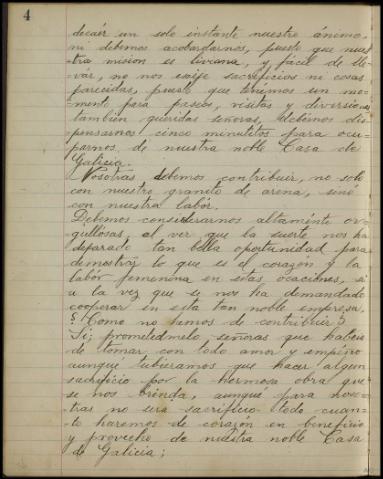 4
decaér un solo instante nuestro ánimo,
ni debemos acobardarnos, puesto que nues
tra mision es liviana, y fácil de lle-
vár, no nos exije sacrificios ni cosas
parecidas, puesto que tenemos un mo-
mento para paseos, visitas y diversiones
tambien queridas señoras, debemos dis-
pensarnos cinco minutitos para ocu-
parnos de nuestra noble Casa de
Galicia.
Nosotras debemos contribuir, no solo
con nuestro granito de arena, sinó
con nuestra labór.
Debemos considerarnos altaménte or-
gullosas, al ver que la suerte nos ha
deparado tan bella oportunidad para
demostrár lo que es el corazón y la
labór femenina en estas ocaciones, si
a la vez que se nos ha demandado
cooperar en esta tan noble empresa.
¿Como no hemos de contribuir?
Si; prometedmelo señoras que habeis
de tomar con todo amor y empeño
aunque tubieramos que hacer algun
sacrificio por la hermosa obra que
se nos brinda, aunqué para noso-
tras no será sacrificio todo cuan-
to haremos de corazón en beneficio
y provecho de nuestra noble Casa
de Galicia;